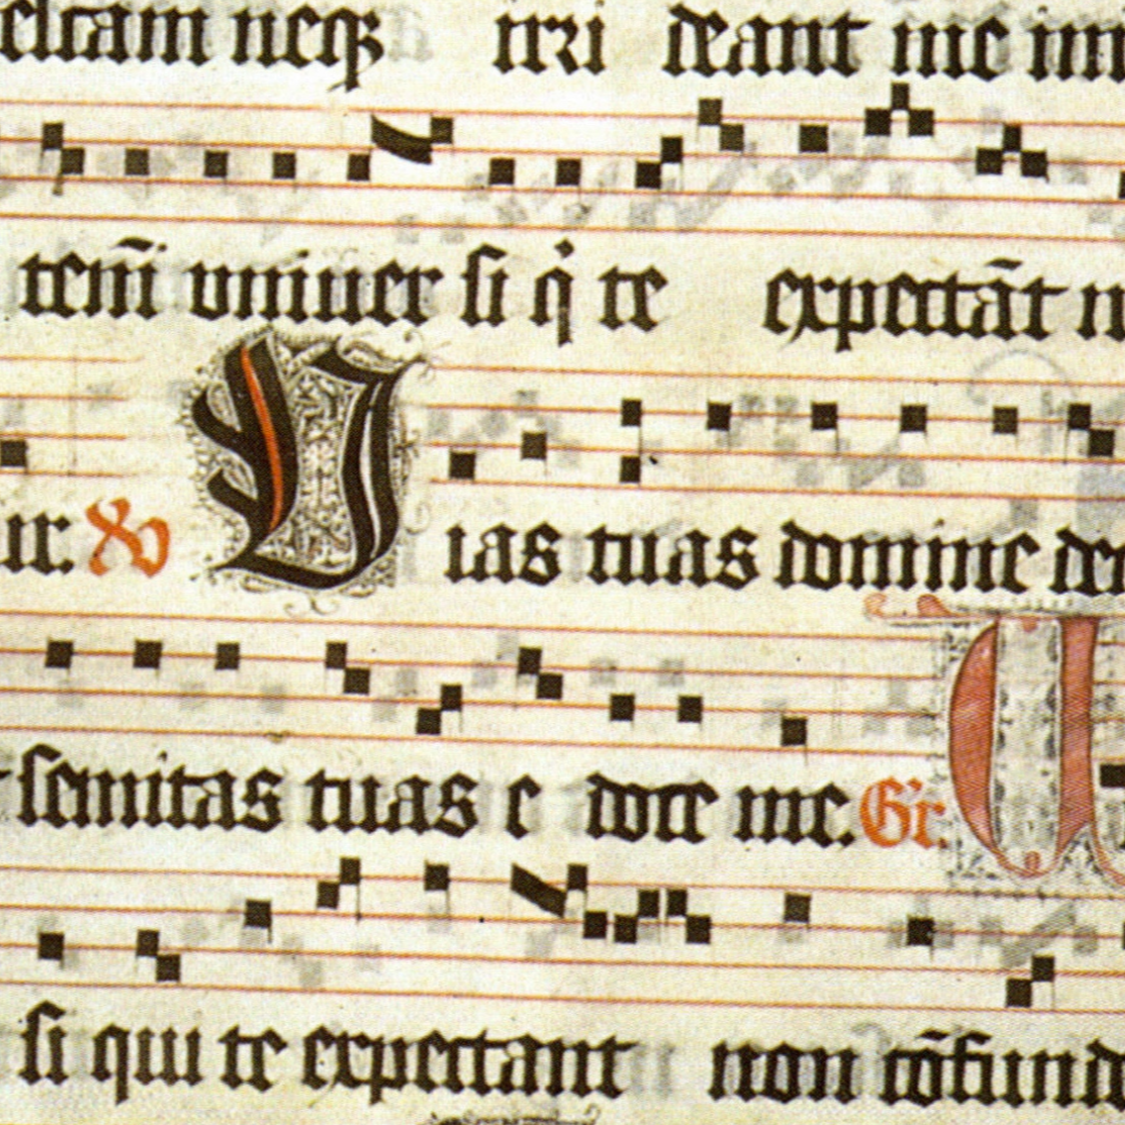 neq irri deant me
tem̄ vniuer si q̇ te expectāt
ur. Vias tuas domine
semitas tuas e doce me. Gr.
si qui te expectant non cōfund